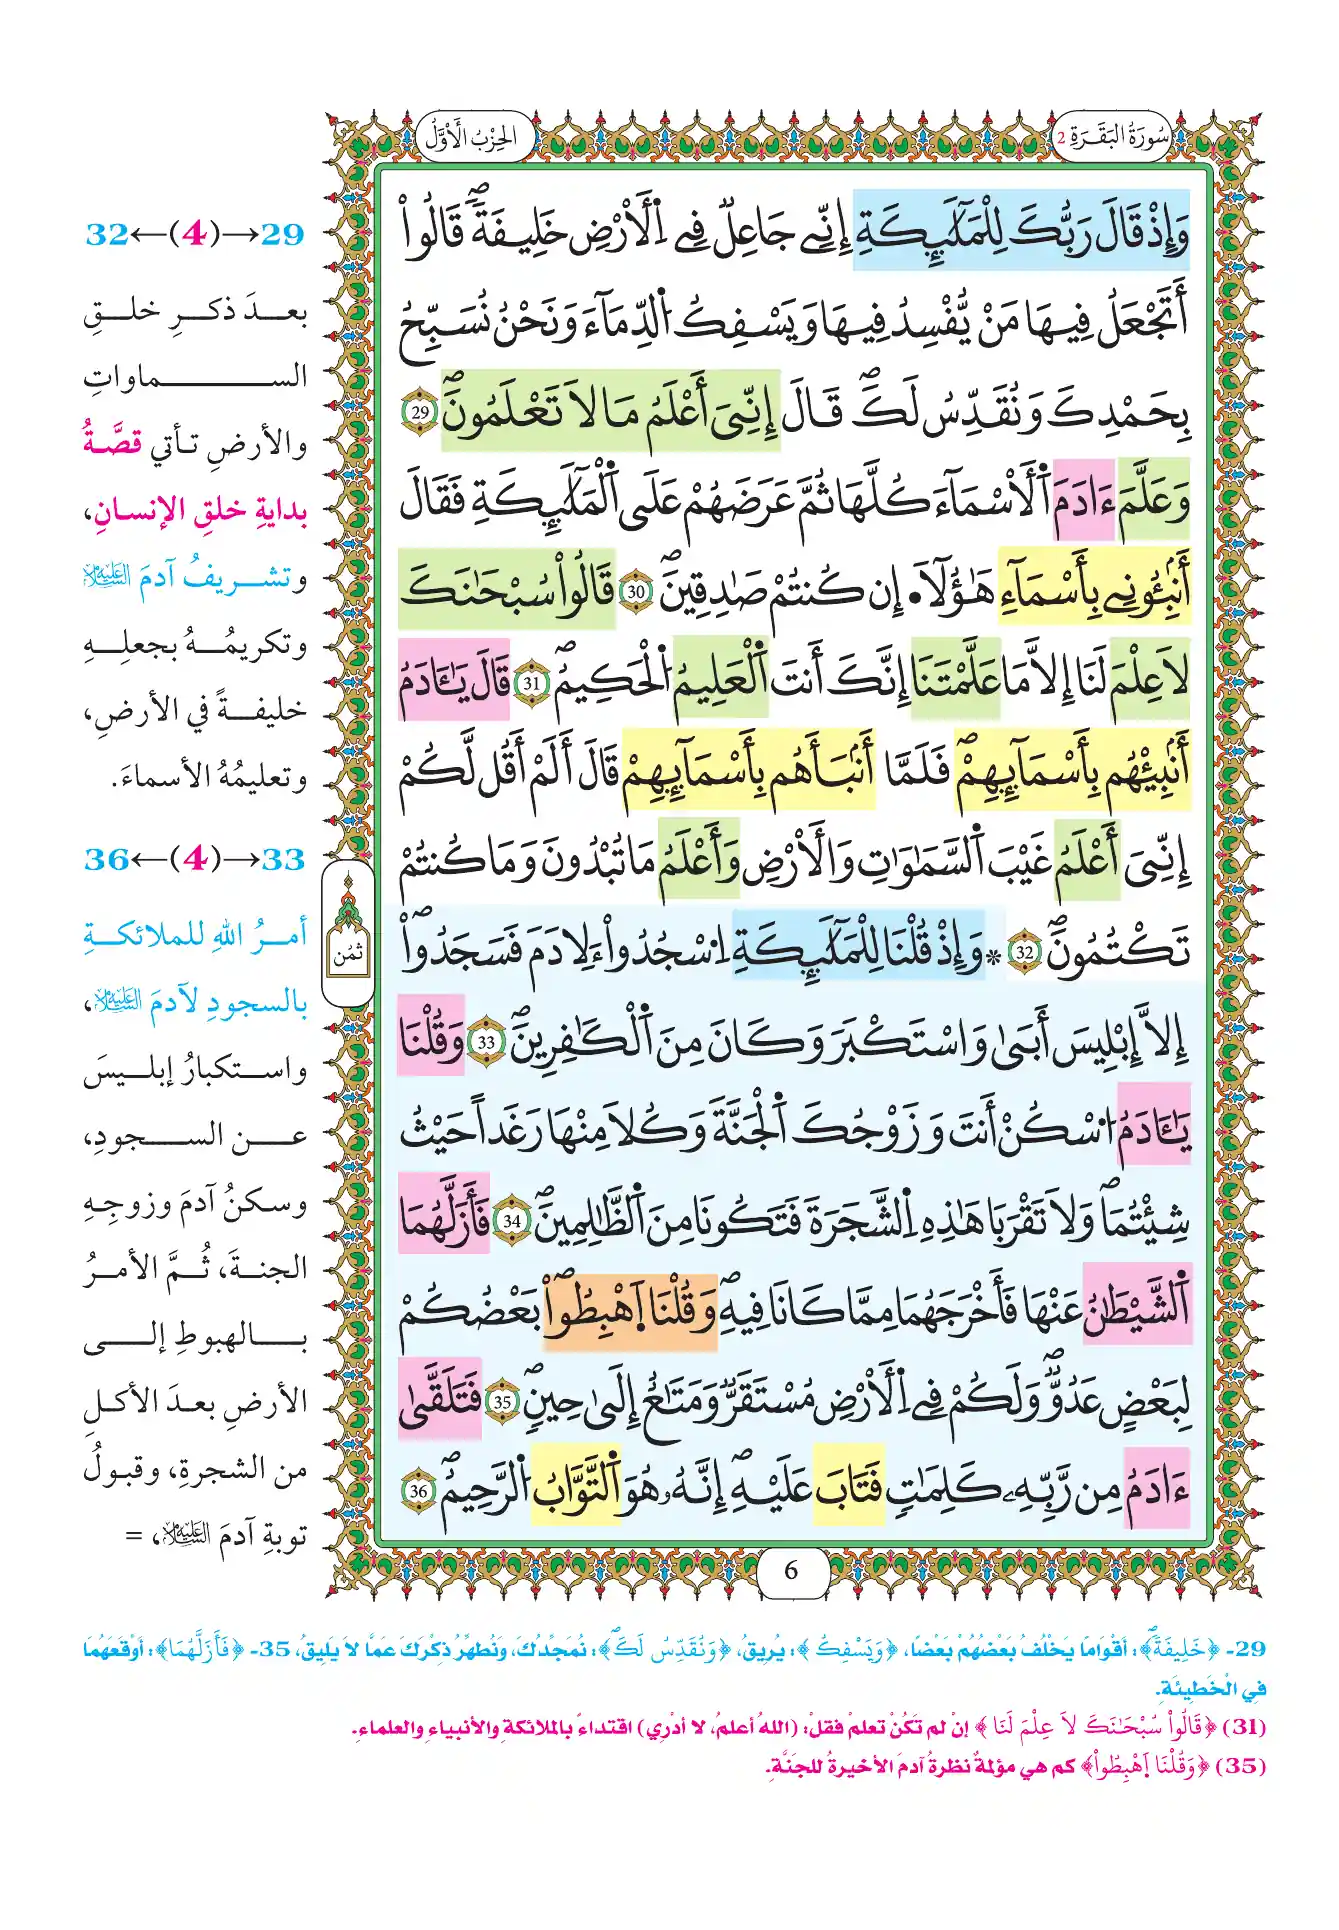 سُورَةُ البَقَرَةِ 2
الحِزْبُ الأَوَّلُ
وَإِذْ قَالَ رَبُّكَ لِلْمَلَٰٓئِكَةِ إِنِّے جَاعِلٞ فِے اِ۬لَارْضِ خَلِيفَةٗۖ قَالُوٓاْ
أَتَجْعَلُ فِيهَا مَنْ يُّفْسِدُ فِيهَا وَيَسْفِكُ اُ۬لدِّمَآءَ وَنَحْنُ نُسَبِّحُ
بِحَمْدِكَ وَنُقَدِّسُ لَكَۖ قَالَ إِنِّيَ أَعْلَمُ مَا لَا تَعْلَمُونَۖ 29
وَعَلَّمَ ءَادَمَ اَ۬لَاسْمَآءَ كُلَّهَا ثُمَّ عَرَضَهُمْ عَلَى اَ۬لْمَلَٰٓئِكَةِ فَقَالَ
أَنۢبِـُٔونِے بِأَسْمَآءِ هَٰٓؤُلَآءِ ان كُنتُمْ صَٰدِقِينَۖ 30 قَالُواْ سُبْحَٰنَكَ
لَا عِلْمَ لَنَآ إِلَّا مَا عَلَّمْتَنَآ إِنَّكَ أَنتَ اَ۬لْعَلِيمُ اُ۬لْحَكِيمُۖ 31 قَالَ يَٰٓـَٔادَمُ
أَنۢبِئْهُم بِأَسْمَآئِهِمْۖ فَلَمَّآ أَنۢبَأَهُم بِأَسْمَآئِهِمْ قَالَ أَلَمَ اَقُل لَّكُمُۥٓ
إِنِّيَ أَعْلَمُ غَيْبَ اَ۬لسَّمَٰوَٰتِ وَالَارْضِ وَأَعْلَمُ مَا تُبْدُونَ وَمَا كُنتُمْ
تَكْتُمُونَۖ 32 * وَإِذْ قُلْنَا لِلْمَلَٰٓئِكَةِ اِ۟سْجُدُواْ ءِلَادَمَ فَسَجَدُوٓاْۖ
إِلَّآ إِبْلِيسَ أَبَىٰ وَاسْتَكْبَرَ وَكَانَ مِنَ اَ۬لْكَٰفِرِينَۖ 33 وَقُلْنَا
يَٰٓـَٔادَمُ اُ۟سْكُنَ اَنتَ وَزَوْجُكَ اَ۬لْجَنَّةَ وَكُلَا مِنْهَا رَغَداً حَيْثُ
شِئْتُمَاۖ وَلَا تَقْرَبَا هَٰذِهِ اِ۬لشَّجَرَةَ فَتَكُونَا مِنَ اَ۬لظَّٰلِمِينَۖ 34 فَأَزَلَّهُمَا
اَ۬لشَّيْطَٰنُ عَنْهَا فَأَخْرَجَهُمَا مِمَّا كَانَا فِيهِۖ وَقُلْنَا اَ۪هْبِطُواْۖ بَعْضُكُمْ
لِبَعْضٍ عَدُوّٞۖ وَلَكُمْ فِے اِ۬لَارْضِ مُسْتَقَرّٞ وَمَتَٰعٌ إِلَىٰ حِينٖۖ 35 فَتَلَقَّىٰٓ
ءَادَمُ مِن رَّبِّهِۦ كَلِمَٰتٖ فَتَابَ عَلَيْهِۖ إِنَّهُۥ هُوَ اَ۬لتَّوَّابُ اُ۬لرَّحِيمُۖ 36
ثمُن
6
29→(4)←32
بعدَ ذكرِ خلقِ
السماواتِ
والأرضِ تأتي قصَّةُ
بدايةِ خلقِ الإنسانِ،
وتشريفُ آدمَ عليه السلام
وتكريمُهُ بجعلِهِ
خليفةً في الأرضِ،
وتعليمُهُ الأسماءَ.
33→(4)←36
أمرُ اللهِ للملائكةِ
بالسجودِ لآدمَ عليه السلام،
واستكبارُ إبليسَ
عن السجودِ،
وسكنُ آدمَ وزوجِهِ
الجنةَ، ثُمَّ الأمرُ
بالهبوطِ إلى
الأرضِ بعدَ الأكلِ
من الشجرةِ، وقبولُ
توبةِ آدمَ عليه السلام، =
29- ﴿خَلِيفَةٗۖ﴾: أَقْوَامًا يَخْلُفُ بَعْضُهُمْ بَعْضًا، ﴿وَيَسْفِكُ﴾: يُرِيقُ، ﴿وَنُقَدِّسُ لَكَۖ﴾: نُمَجِّدُكَ، وَنُطَهِّرُ ذِكْرَكَ عَمَّا لاَ يَلِيقُ، 35- ﴿فَأَزَلَّهُمَا﴾: أَوْقَعَهُمَا
فِي الْخَطِيئَةِ.
(31) ﴿قَالُواْ سُبْحَٰنَكَ لَا عِلْمَ لَنَا﴾ إنْ لم تَكُنْ تعلمْ فقلْ: (اللهُ أعلمُ، لا أدْرِي) اقتداءً بالملائكةِ والأنبياءِ والعلماءِ.
(35) ﴿وَقُلْنَا اَ۪هْبِطُواْ﴾ كم هي مؤلمةٌ نظرةُ آدمَ الأخيرةُ للجَنَّةِ.